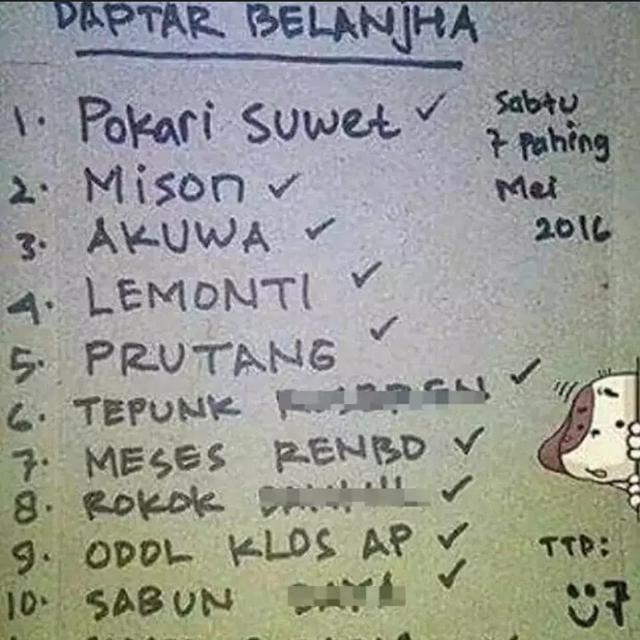 DAPTAR BELANJHA
1. Pokari Suwet ✓
2. Mison ✓
3. AKUWA ✓
4. LEMONTI ✓
5. PRUTANG ✓
6. TEPUNK ✓
7. MESES RENBO ✓
8. ROKOK ✓
9. ODOL KLOS AP ✓
10. SABUN ✓
Sabtu
7 Pahing
Mei
2016
TTD: